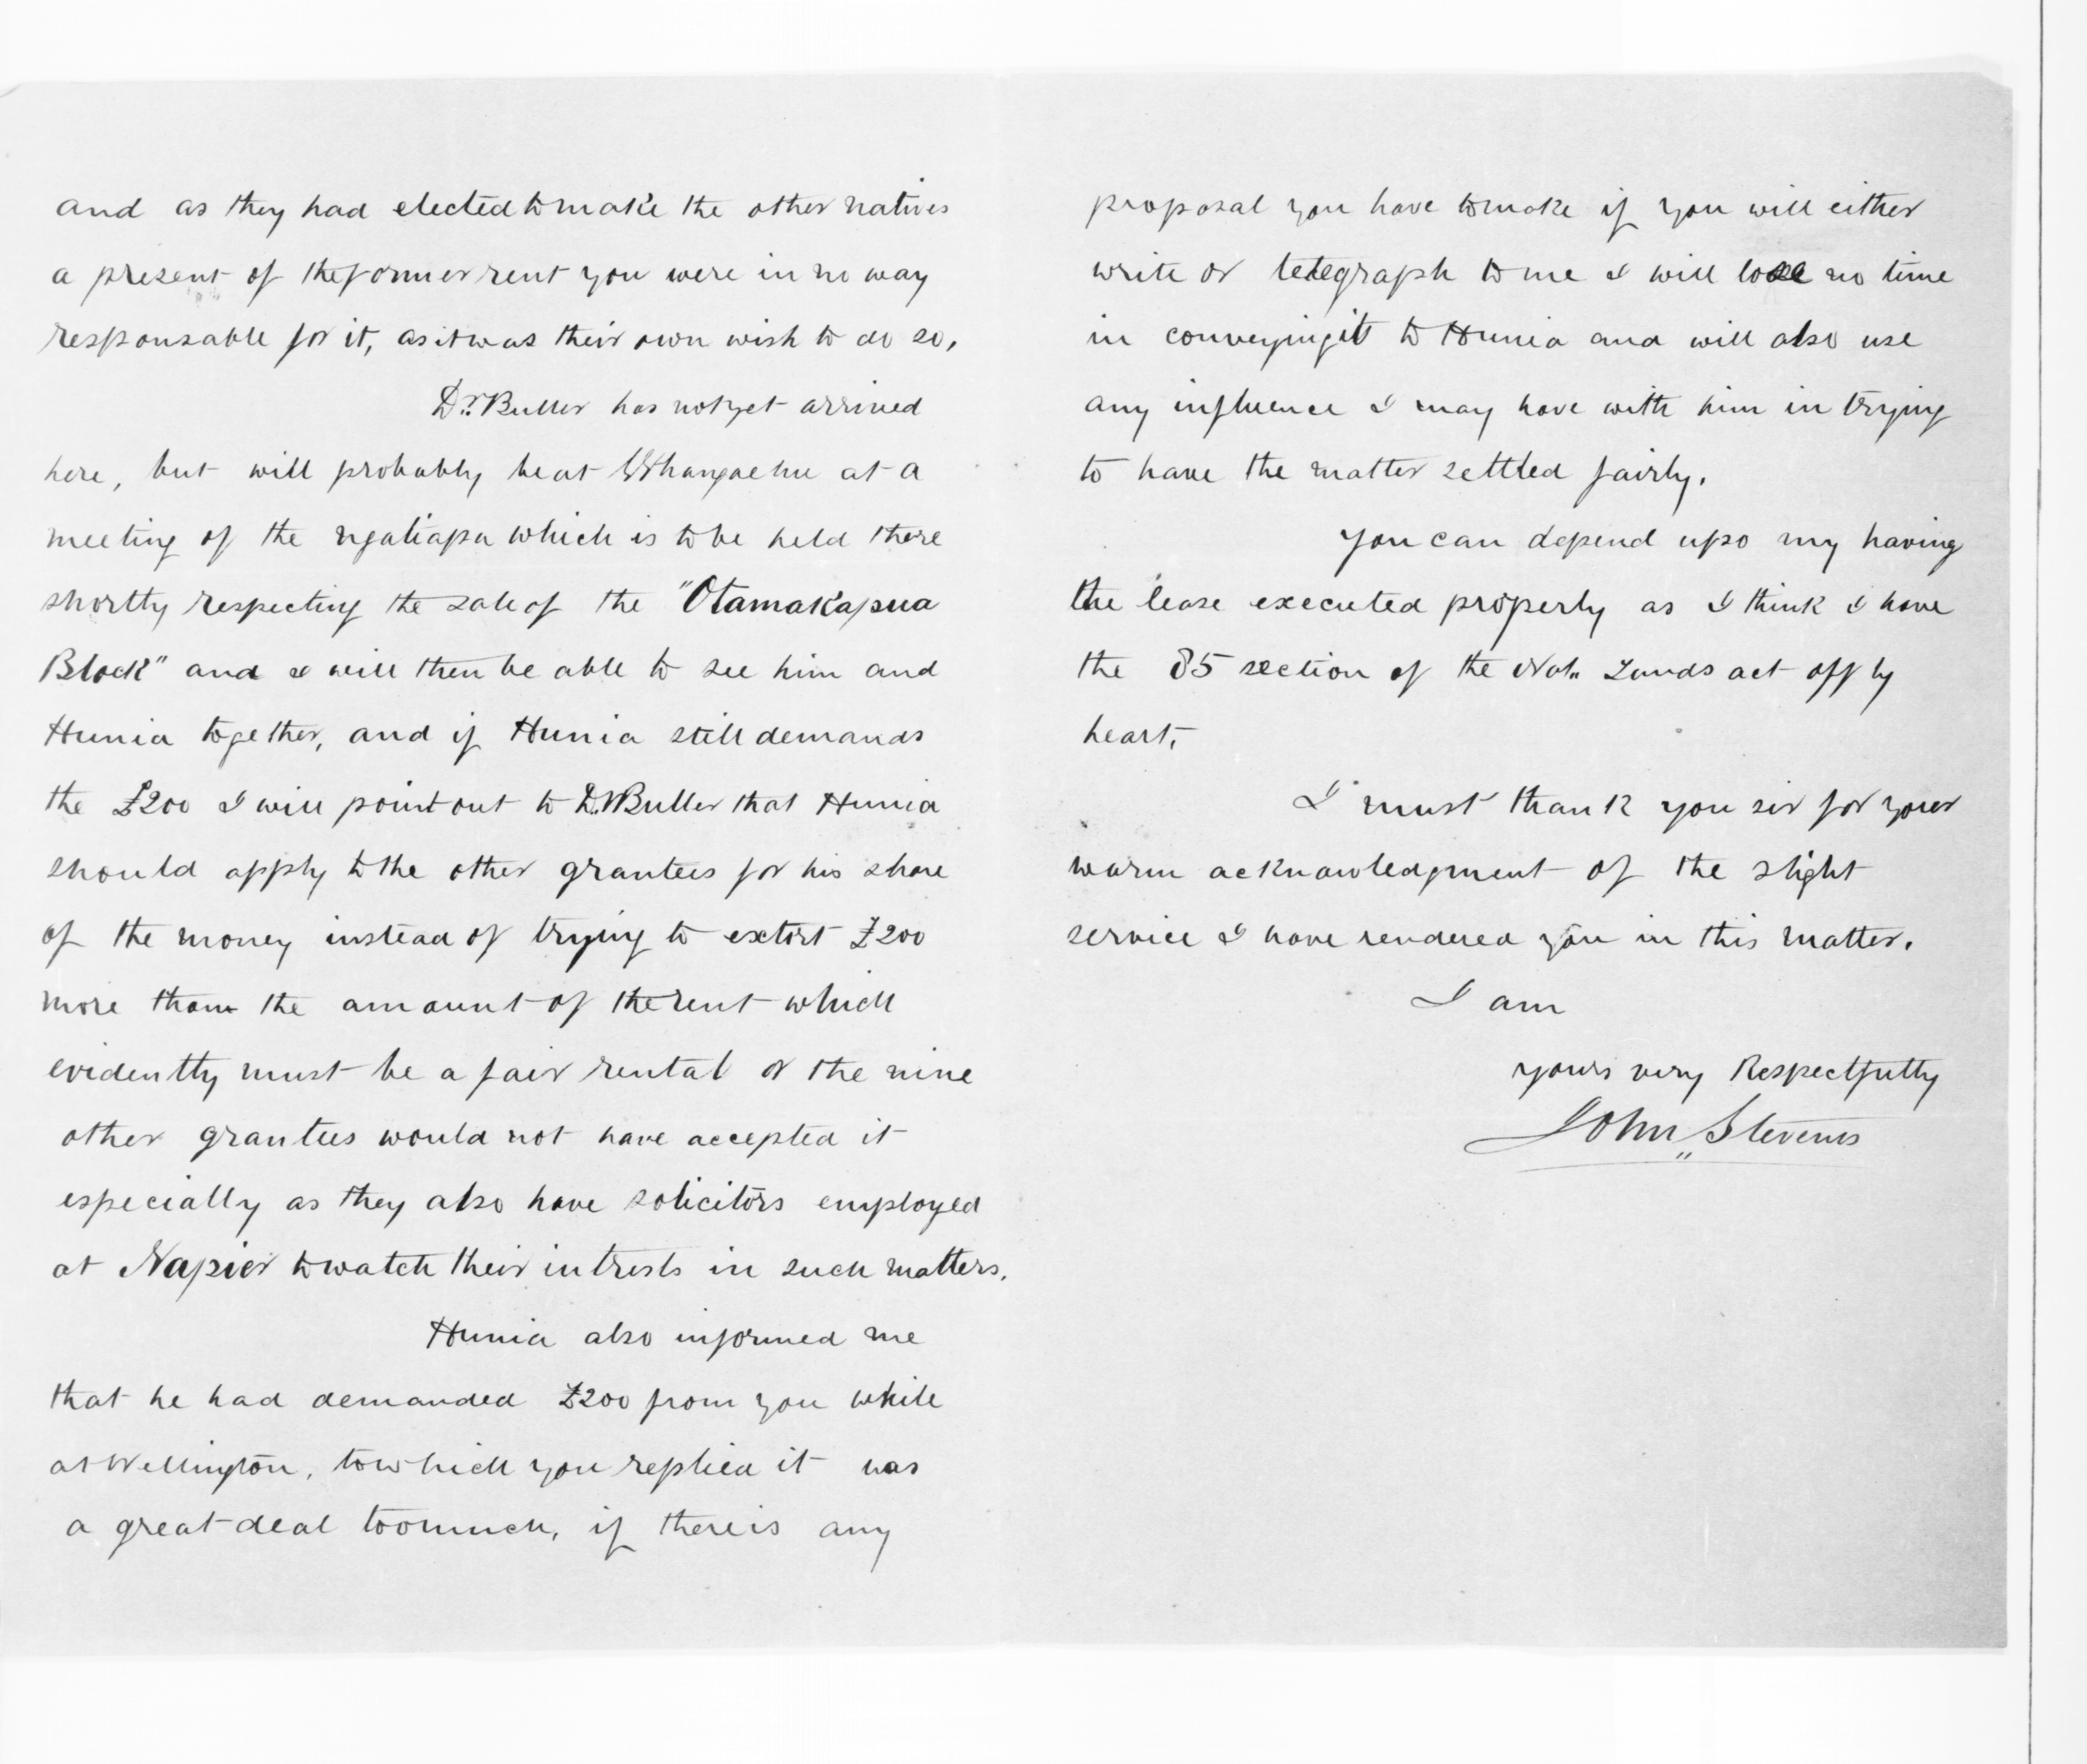 and as they had elected to make the other natives
a present of the former rent you were in no way
responsable for it, as it was their own wish to do so,
Dr. Buller has not yet arrived
here, but will probably be at Whangaehu at a
meeting of the ngatiapa which is to be held there
shortly respecting the sale of the "Otamakapua
Block" and I will then be able to see him and
Hunia together, and if Hunia still demands
the £200 I will point out to Dr. Buller that Hunia
should apply to the other grantees for his share
of the money instead of trying to extort £200
more than the amount of the rent which
evidently must be a fair rental or the nine
other grantees would not have accepted it
especially as they also have solicitors employed
at Napier to watch their intrests in such matters.
Hunia also informed me
that he had demanded £200 from you while
at Wellington, to which you replied it was
a great deal too much, if there is any
proposal you have to make if you will either
write or telegraph to me I will lose no time
in conveying it to Hunia and will also use
any influence I may have with him in trying
to have the matter settled fairly.
You can depend upo my having
the lease executed properly as I think I have
the 85 section of the Nat. Lands act off by
heart,
I must thank you sir for your
warm acknowledgment of the slight
service I have rendered you in this matter.
I am
yours very Respectfully
John Stevens